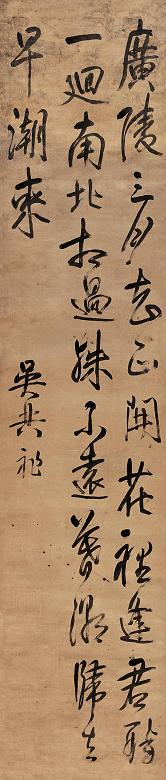 廣陵三月花正開花裡逢君醉
一迴南北相過殊不遠暮潮歸去
早潮來
吳